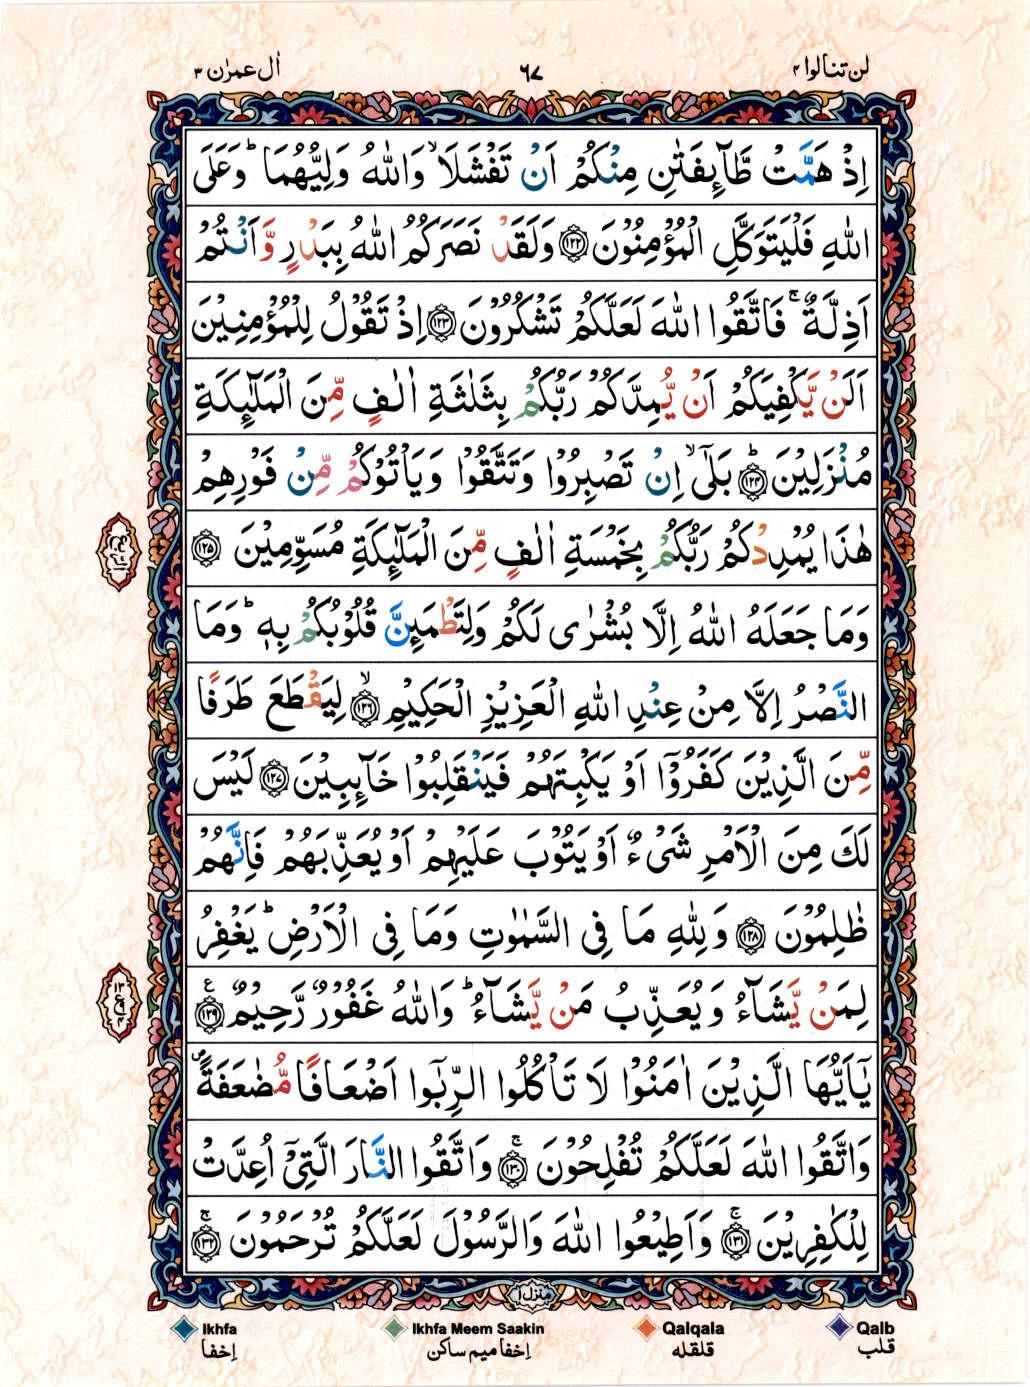 لن تنالوا ۴
٦٧
اٰل عمرٰن ۳
اِذْ هَمَّتْ طَّآىِٕفَتٰنِ مِنْكُمْ اَنْ تَفْشَلَا ۙ وَاللّٰهُ وَلِيُّهُمَا ؕ وَعَلَى
اللّٰهِ فَلْيَتَوَكَّلِ الْمُؤْمِنُوْنَ ﴿۱۲۲﴾ وَلَقَدْ نَصَرَكُمُ اللّٰهُ بِبَدْرٍ وَّاَنْتُمْ
اَذِلَّةٌ ۚ فَاتَّقُوا اللّٰهَ لَعَلَّكُمْ تَشْكُرُوْنَ ﴿۱۲۳﴾ اِذْ تَقُوْلُ لِلْمُؤْمِنِيْنَ
اَلَنْ يَّكْفِيَكُمْ اَنْ يُّمِدَّكُمْ رَبُّكُمْ بِثَلٰثَةِ اٰلٰفٍ مِّنَ الْمَلٰٓىِٕكَةِ
مُنْزَلِيْنَ ؕ ﴿۱۲۴﴾ بَلٰٓى ۙ اِنْ تَصْبِرُوْا وَتَتَّقُوْا وَيَاْتُوْكُمْ مِّنْ فَوْرِهِمْ
هٰذَا يُمْدِدْكُمْ رَبُّكُمْ بِخَمْسَةِ اٰلٰفٍ مِّنَ الْمَلٰٓىِٕكَةِ مُسَوِّمِيْنَ ﴿۱۲۵﴾
الربع
وَمَا جَعَلَهُ اللّٰهُ اِلَّا بُشْرٰى لَكُمْ وَلِتَطْمَىِٕنَّ قُلُوْبُكُمْ بِهٖ ؕ وَمَا
النَّصْرُ اِلَّا مِنْ عِنْدِ اللّٰهِ الْعَزِيْزِ الْحَكِيْمِ ۙ ﴿۱۲۶﴾ لِيَقْطَعَ طَرَفًا
مِّنَ الَّذِيْنَ كَفَرُوْۤا اَوْ يَكْبِتَهُمْ فَيَنْقَلِبُوْا خَآىِٕبِيْنَ ﴿۱۲۷﴾ لَيْسَ
لَكَ مِنَ الْاَمْرِ شَىْءٌ اَوْ يَتُوْبَ عَلَيْهِمْ اَوْ يُعَذِّبَهُمْ فَاِنَّهُمْ
ظٰلِمُوْنَ ﴿۱۲۸﴾ وَلِلّٰهِ مَا فِى السَّمٰوٰتِ وَمَا فِى الْاَرْضِ ؕ يَغْفِرُ
لِمَنْ يَّشَآءُ وَيُعَذِّبُ مَنْ يَّشَآءُ ؕ وَاللّٰهُ غَفُوْرٌ رَّحِيْمٌ ﴿۱۲۹﴾ ع
يٰۤاَيُّهَا الَّذِيْنَ اٰمَنُوْا لَا تَاْكُلُوا الرِّبٰۤوا اَضْعَافًا مُّضٰعَفَةً ۪
وَاتَّقُوا اللّٰهَ لَعَلَّكُمْ تُفْلِحُوْنَ ۚ ﴿۱۳۰﴾ وَاتَّقُوا النَّارَ الَّتِىْۤ اُعِدَّتْ
لِلْكٰفِرِيْنَ ۚ ﴿۱۳۱﴾ وَاَطِيْعُوا اللّٰهَ وَالرَّسُوْلَ لَعَلَّكُمْ تُرْحَمُوْنَ ۚ ﴿۱۳۲﴾
منزل ١
Ikhfa
Ikhfa Meem Saakin
Qalqala
Qalb
اِخفا
اِخفا میم ساکن
قلقله
قلب